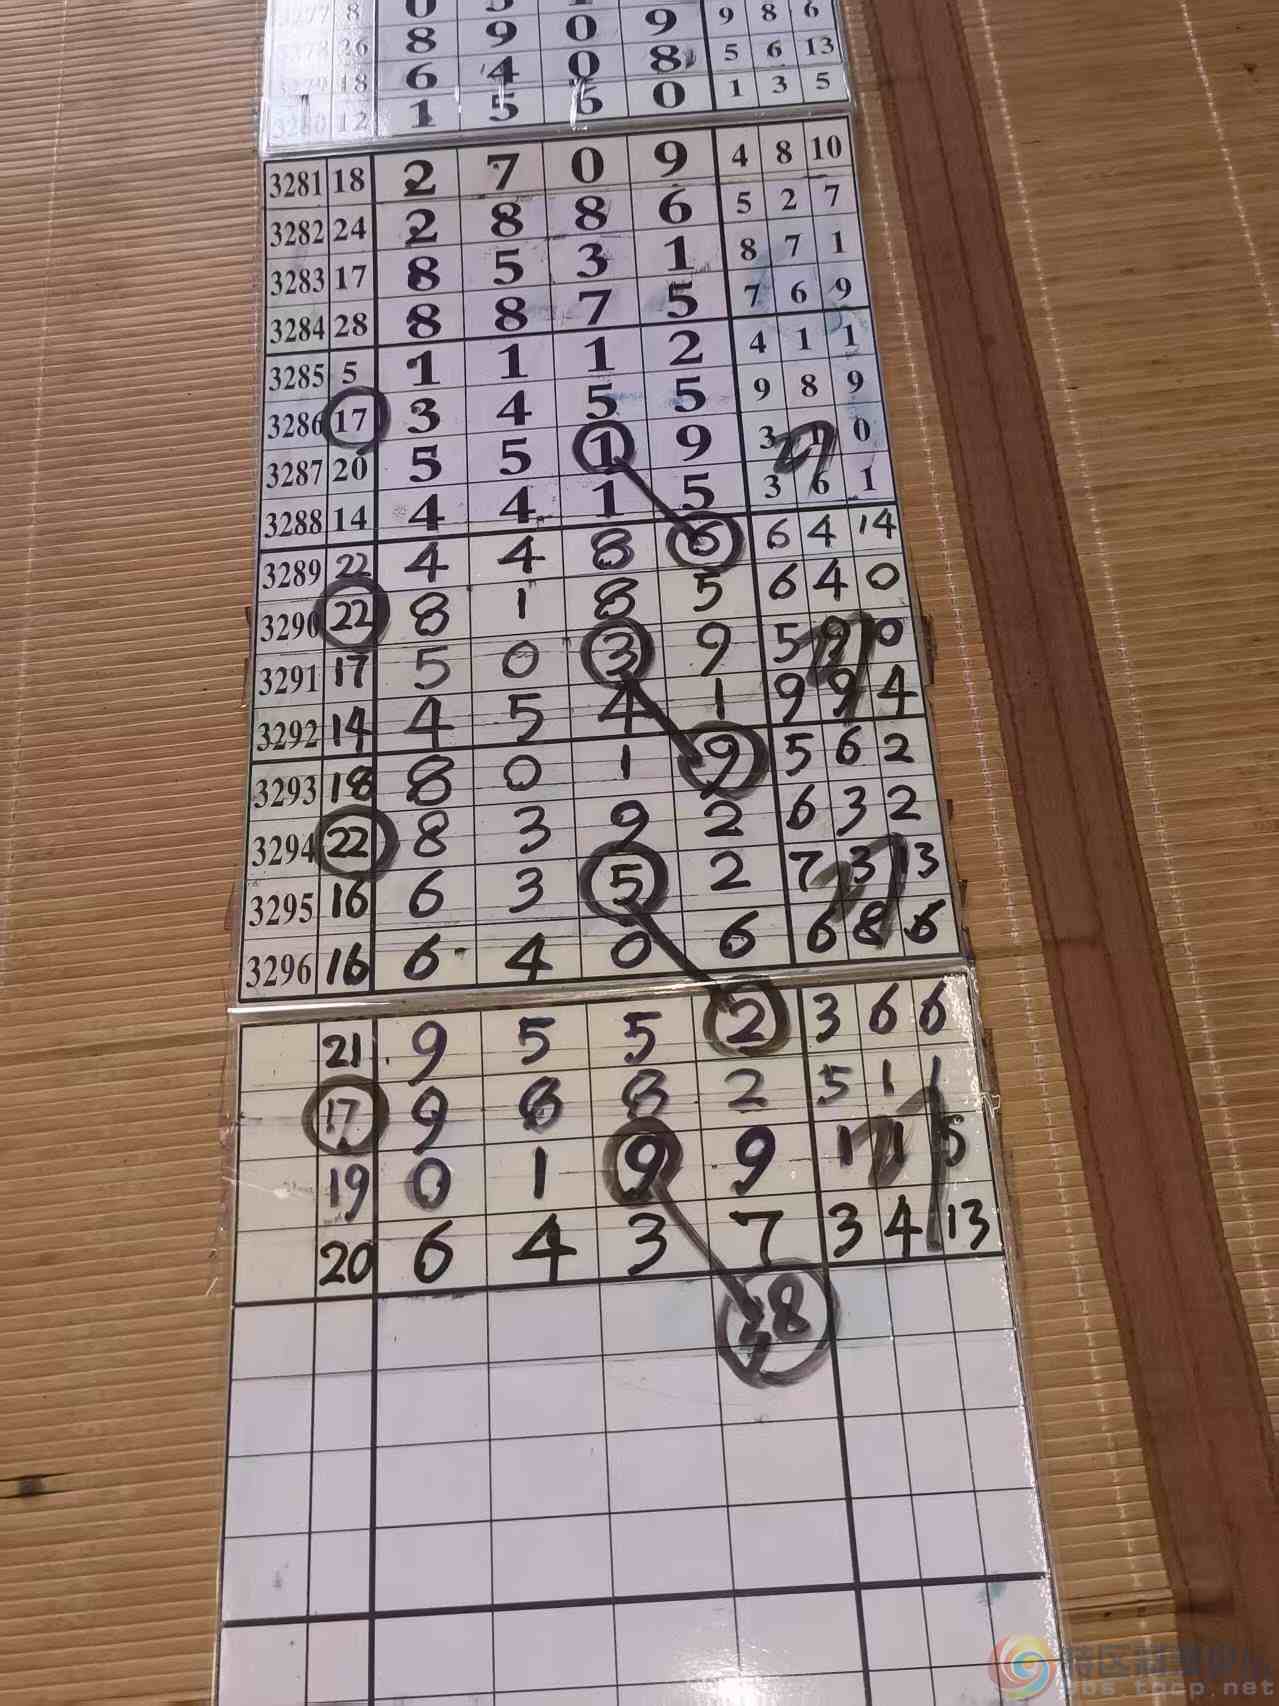 3277 8 9 8 6
3278 26 8 9 0 9 5 6 13
3279 18 6 4 0 8 1 3 5
3280 12 1 5 6 0
3281 18 2 7 0 9 4 8 10
3282 24 2 8 8 6 5 2 7
3283 17 8 5 3 1 8 7 1
3284 28 8 8 7 5 7 6 9
3285 5 1 1 1 2 4 1 1
3286 17 3 4 5 5 9 8 9
3287 20 5 5 1 9 3 1 0
3288 14 4 4 1 5 3 6 1
3289 22 4 4 8 6 6 4 14
3290 22 8 1 8 5 6 4 0
3291 17 5 0 3 9 5 9 0
3292 14 4 5 4 1 9 9 4
3293 18 8 0 1 9 5 6 2
3294 22 8 3 9 2 6 3 2
3295 16 6 3 5 2 7 3 13
3296 16 6 4 0 6 6 8 6
21 9 5 5 2 3 6 6
17 9 8 8 2 5 1 1
19 0 1 9 9 1 1 5
20 6 4 3 7 3 4 13
38